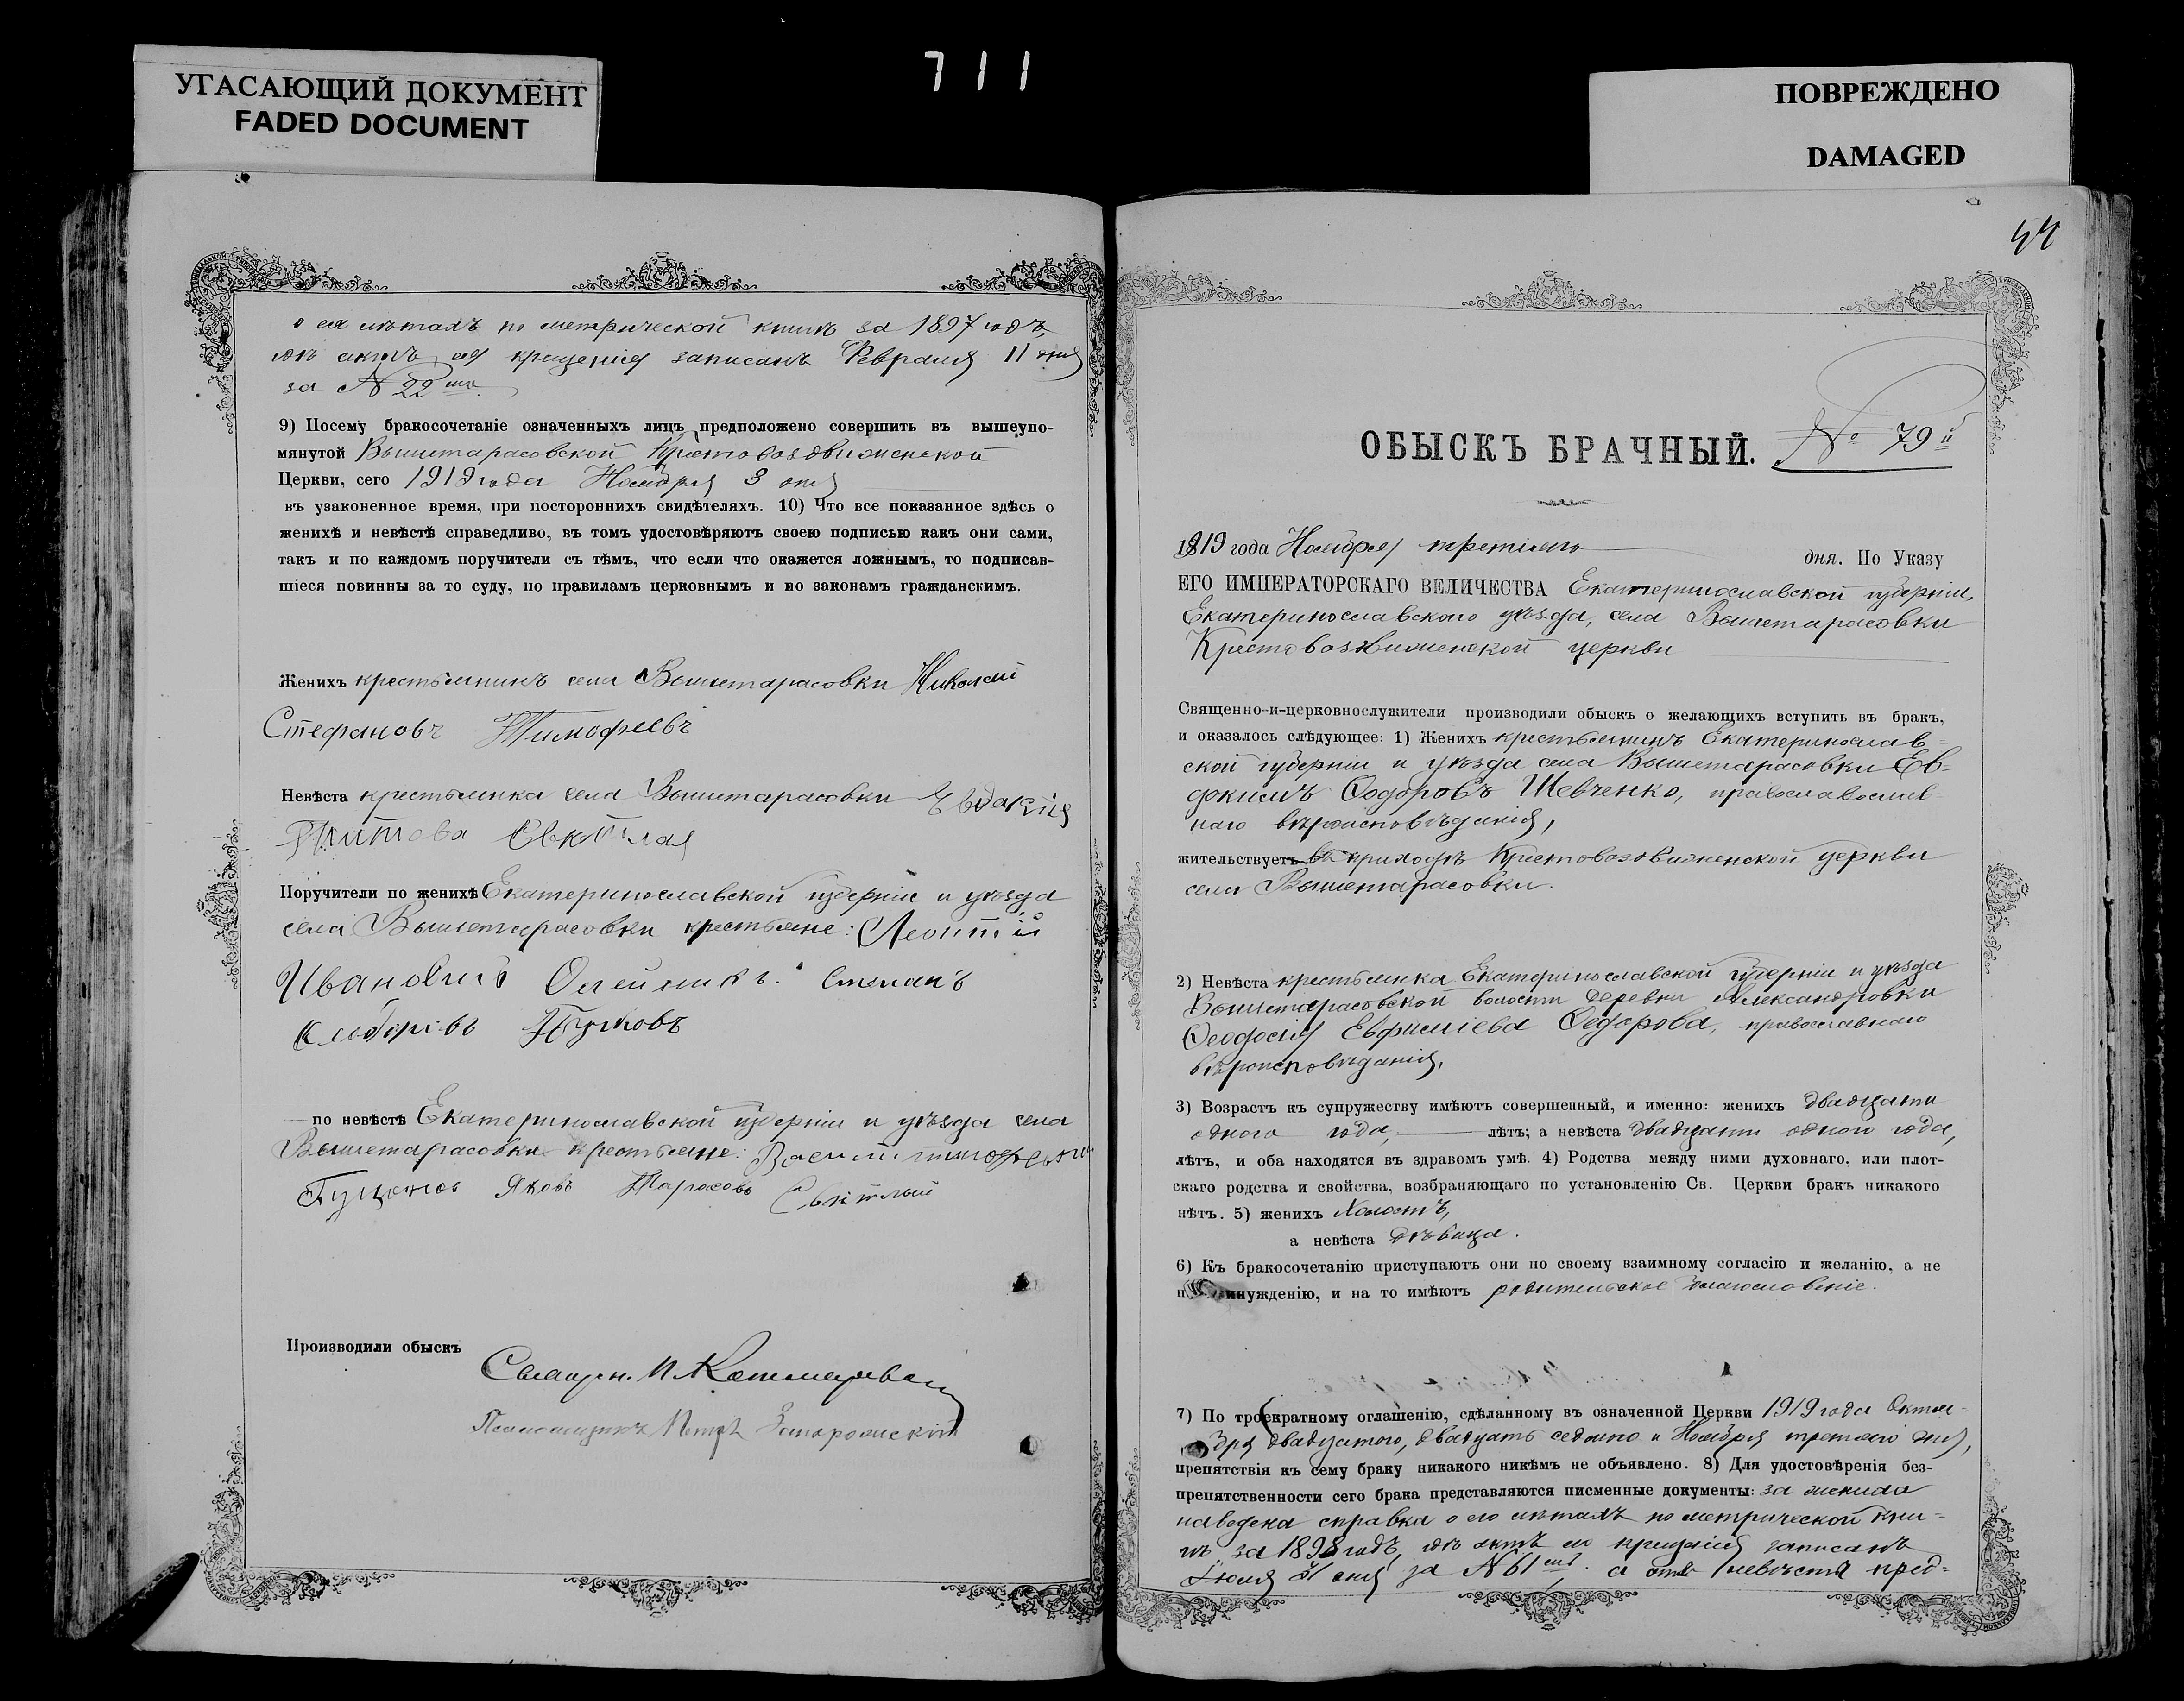 УГАСАЮЩИЙ ДОКУМЕНТ
FADED DOCUMENT
711
ПОВРЕЖДЕНО
DAMAGED
о ея лѣтахъ по метрической книгѣ за 1897 годъ,
гдѣ актъ ея крещенія записанъ Февраля 11 дня
за № 22
9) Посему бракосочетаніе означенныхъ лицъ предположено совершить въ вышеупо-
мянутой Вышетарасовской Крестовоздвиженской
Церкви, сего 1919 года Ноября 3 дня
въ узаконенное время, при постороннихъ свидѣтеляхъ. 10) Что все показанное здѣсь о
женихѣ и невѣстѣ справедливо, въ томъ удостовѣряютъ своею подписью какъ они сами,
такъ и по каждомъ поручители съ тѣмъ, что если что окажется ложнымъ, то подписав-
шіеся повинны за то суду, по правиламъ церковнымъ и по законамъ гражданскимъ.
Женихъ крестьянинъ села Вышетарасовки Николай
Стефановъ Тимофеевъ
Невѣста крестьянка села Вышетарасовки Евдокія
Титова
Поручители по женихѣ Екатеринославской губерніи и уѣзда
села Вышетарасовки крестьяне: Леонтій
Ивановичъ Олейникъ. Степанъ
по невѣстѣ Екатеринославской губерніи и уѣзда села
Вышетарасовки крестьяне:
Яковъ Тарасовъ Свѣтлый
Производили обыскъ
Священ. И.
Псаломщикъ Петръ
44
ОБЫСКЪ БРАЧНЫЙ. № 79й
1919 года Ноября третьяго дня. По Указу
ЕГО ИМПЕРАТОРСКАГО ВЕЛИЧЕСТВА Екатеринославской губерніи,
Екатеринославского уѣзда, села Вышетарасовки
Крестовоздвиженской церкви
Священно-и-церковнослужители производили обыскъ о желающихъ вступить въ бракъ,
и оказалось слѣдующее: 1) Женихъ крестьянинъ Екатеринослав-
ской губерніи и уѣзда села Вышетарасовки Ев-
фкимъ Ѳодоровъ Шевченко, православослав-
наго вѣроисповѣданія,
жительствуетъ въ приходѣ Крестовоздвиженской церкви
села Вышетарасовки.
2) Невѣста крестьянка Екатеринославской губерніи и уѣзда
Вышетарасовской волости деревни Александровки
Ѳеодосія Евфиміева Ѳедорова, православнаго
вѣроисповѣданія,
3) Возрастъ къ супружеству имѣютъ совершенный, и именно: женихъ двадцати
одного года, лѣтъ; а невѣста двадцати одного года,
лѣтъ, и оба находятся въ здравомъ умѣ. 4) Родства между ними духовнаго, или плот-
скаго родства и свойства, возбраняющаго по установленію Св. Церкви бракъ никакого
нѣтъ. 5) женихъ холостъ,
а невѣста дѣвица.
6) Къ бракосочетанію приступаютъ они по своему взаимному согласію и желанію, а не
инужденію, и на то имѣютъ родительское благословеніе.
7) По троекратному оглашенію, сдѣланному въ означенной Церкви 1919 года Октя-
бря двадцатого, двадцать седьмого и Ноября третьяго дня,
препятствія къ сему браку никакого никѣмъ не объявлено. 8) Для удостовѣренія без-
препятственности сего брака представляются писменные документы: за жениха
наведена справка о его лѣтахъ по метрической кни-
гѣ за 1898 годъ, гдѣ актъ его крещенія записанъ
Іюля 31 дня за № 61 а о невѣстѣ пред-